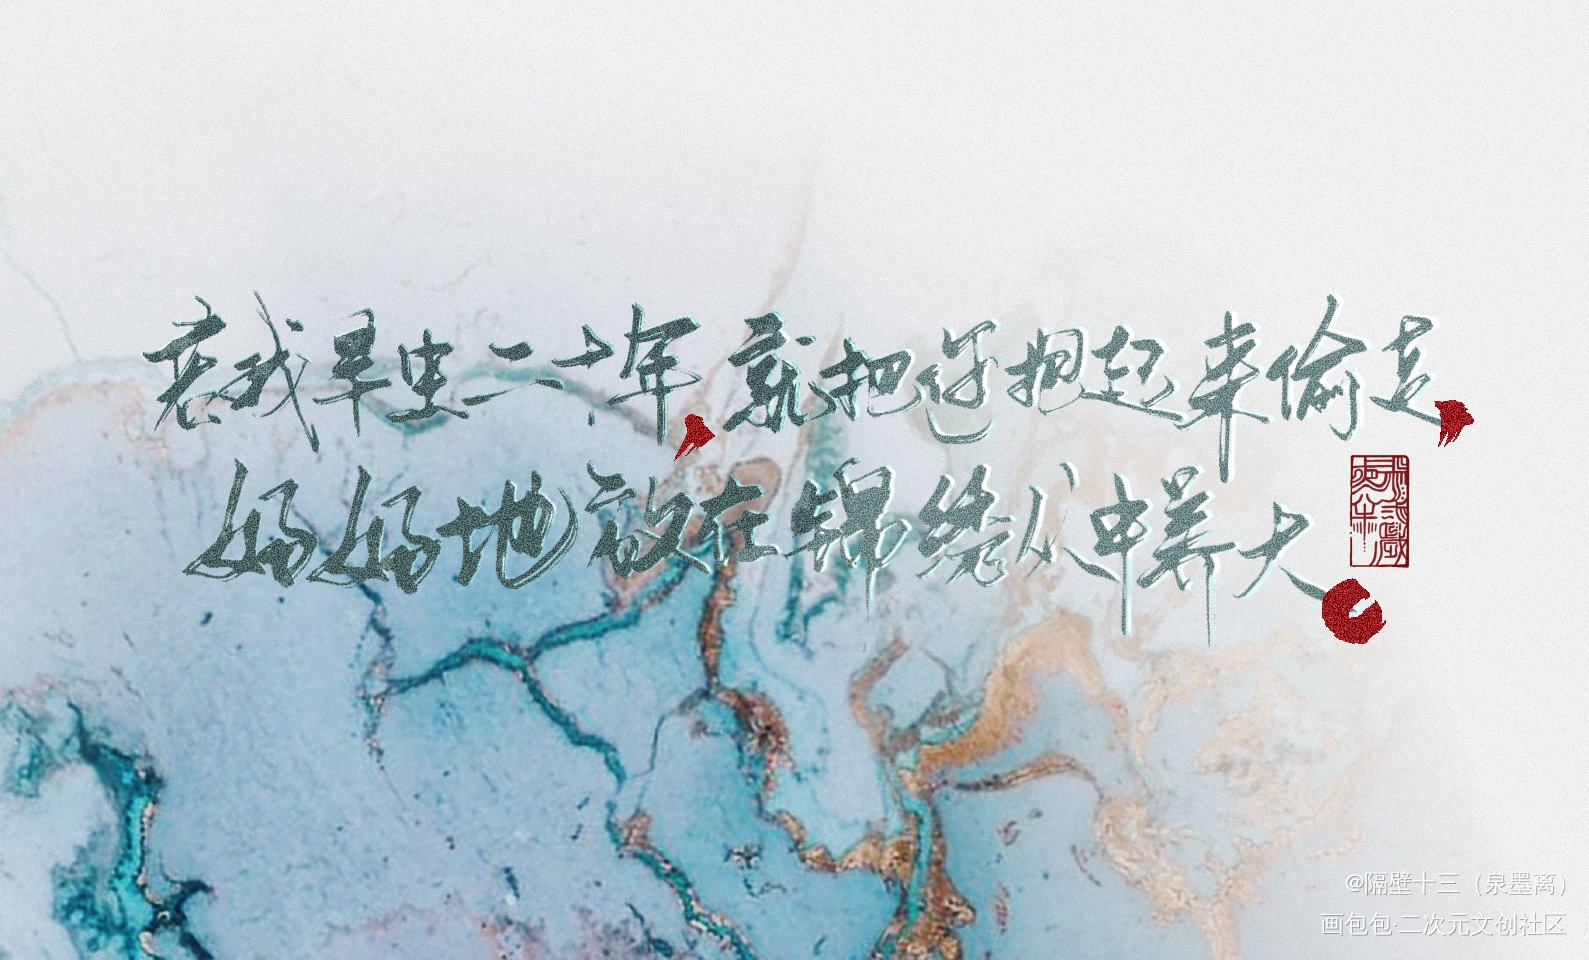 若我早生二十年，就把你抱起来偷走，
好好地放在锦绣丛中养大。
@隔壁十三（泉墨离）
画包包·二次元文创社区